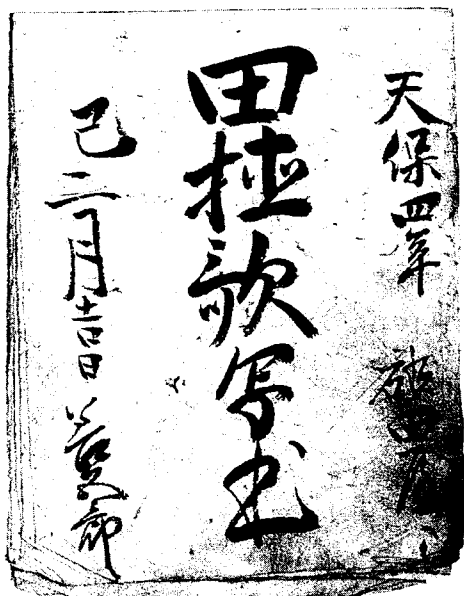 天保四年
田植歌写書
巳二月吉日